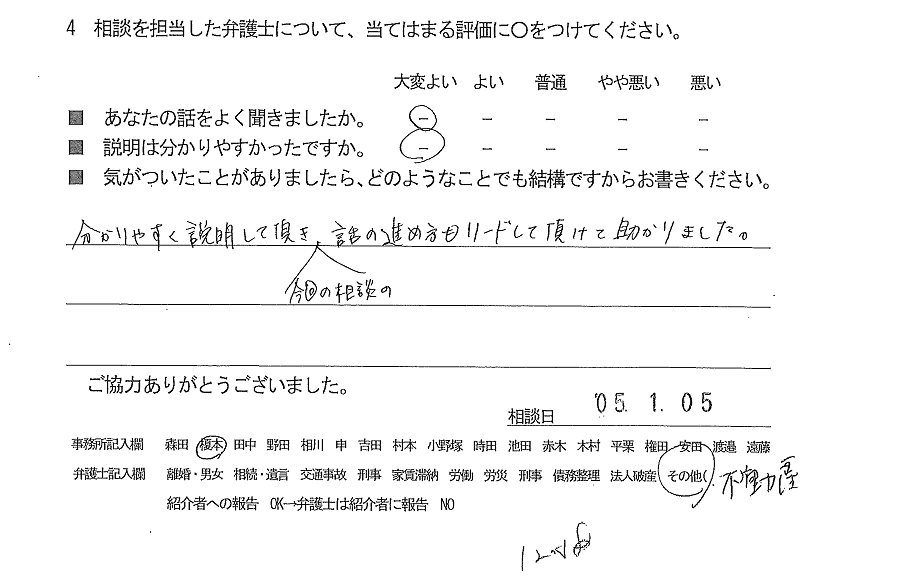 4 相談を担当した弁護士について、当てはまる評価に〇をつけてください。
大変よい よい 普通 やや悪い 悪い
■ あなたの話をよく聞きましたか。 － － － － －
■ 説明は分かりやすかったですか。 － － － － －
■ 気がついたことがありましたら、どのようなことでも結構ですからお書きください。
分かりやすく説明して頂き、話の進め方もリードして頂けて助かりました。
今回の相談の
ご協力ありがとうございました。
相談日 '05. 1. 05
事務所記入欄 森田 榎本 田中 野田 相川 申 吉田 村本 小野塚 時田 池田 赤木 木村 平栗 権田 安田 渡邉 遠藤
弁護士記入欄 離婚・男女 相続・遺言 交通事故 刑事 家賃滞納 労働 労災 刑事 債務整理 法人破産 その他( 不動産
紹介者への報告 OK→弁護士は紹介者に報告 NO